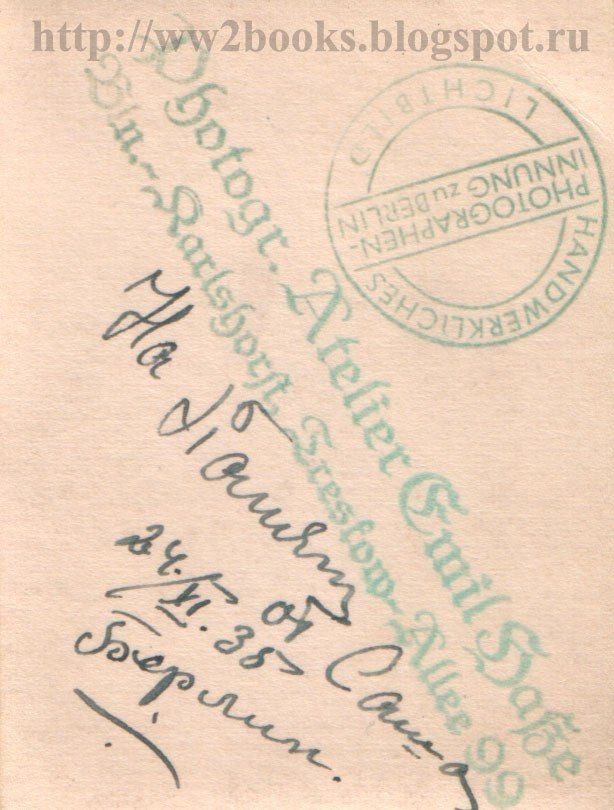 http://ww2books.blogspot.ru
Photogr. Atelier Emil Haße
Bln.-Karlshorst, Treskow-Allee 99
HANDWERKLICHES LICHTBILD
PHOTOGRAPHEN-
INNUNG zu BERLIN
На Память
от Саши
24./VI.35
Берлин.